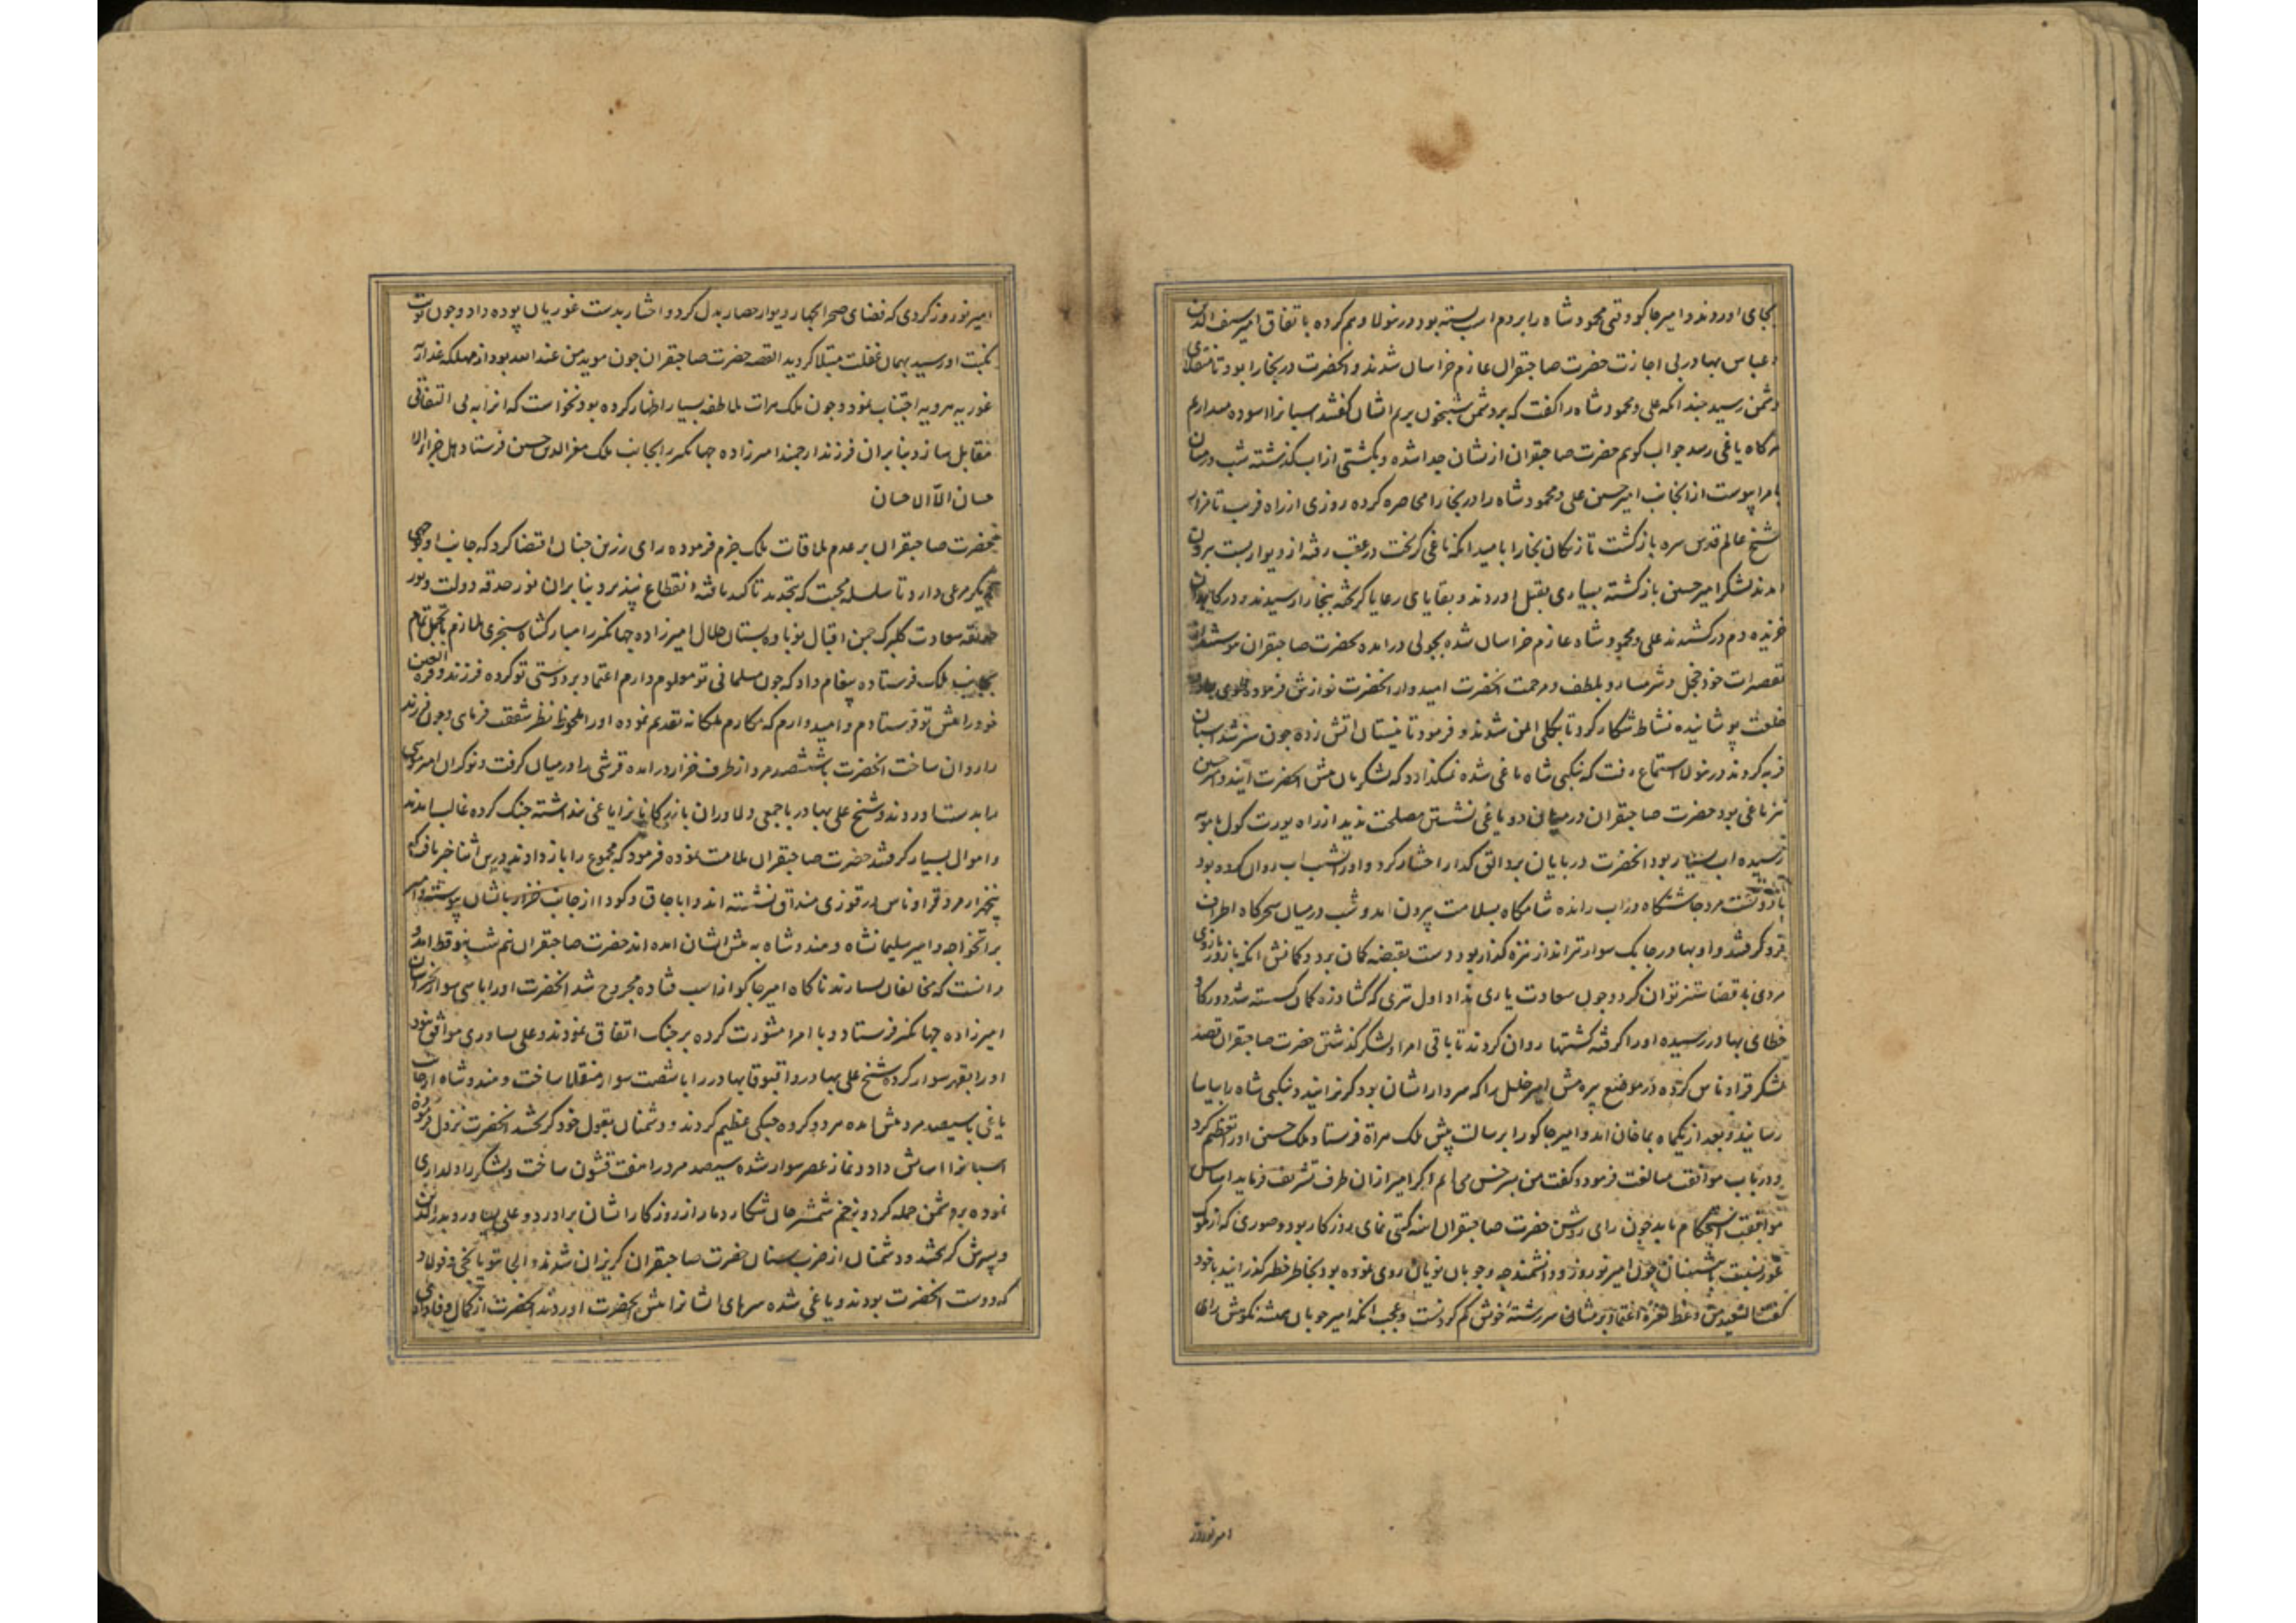 بجای اوردند و امیر جاکو وقتی محمود شاه را بر دم اسب بسته بود در نولا وهم کرده باتفاق امیر سیف الدین
و عباس بهادر بی اجازت حضرت صاحبقران عازم خراسان شدند و انحضرت در بخارا بود تا منقلای
دشمن رسید چندانکه علی و محمود شاه را گفت که بر دشمن شبیخون بریم ایشان گفتند اسبانرا اسوده میداریم
هرگاه یاغی رسد جواب گویم حضرت صاحبقران ازیشان جدا شده و بکشتی از اب گذشته شب در میان
بامرا پیوست از انجانب امیر حسین علی و محمود شاه را در بخارا محاصره کرده روزی از راه فریب تا مزار
شیخ عالم قدس سره بازگشت تازیکان بخارا بامید انکه یاغی گریخت در عقب رفته از دیوار بست برون
امدند لشکر امیر حسین بازگشته بسیاری بقتل اوردند و بقایای رعایا گریخته ببخارا رسیدند و در
خزیده دم درکشیدند علی و محمود شاه عازم خراسان شده بچولی درامده بحضرت صاحبقران
تقصیرات خود خجل و شرمسار و بلطف و مرحمت انحضرت امیدوار انحضرت نوازش فرموده
خلعت پوشانیده نشاط شکار کرد تا بکلی ایمن شدند و فرمود تا نیستان اتش زده چون سبز شد اسبان
فربه کردند در نولا استماع رفت که نیکبی شاه یاغی شده نمیگذارد که لشکریان پیش انحضرت ایند و امیر حسین
نیز یاغی بود حضرت صاحبقران در میان دو یاغی نشستن مصلحت ندید از راه یورت کول بامویه
رسیده اب بسیار بود انحضرت در بیابان بردالق گدار اختیار کرد و اورا شب اب روان کرده بود
مرد چاشتگاه در اب رانده شامگاه بسلامت بیرون امد و شب در میان سحرگاه اطراف
فرو گرفتند و او بهادر چابک سوار تیر انداز نیزه گذار بود دست بقبضه کمان برد و کمانش انکه بازور بازوی
مردی با قضا ستیز نتوان کرد و چون سعادت یاری نداد اول تیری که گشاد زه کمان گسسته شد
خطای بهادر رسیده اورا گرفته کشتیها روان کردند تا باقی امرا و لشکر گذشتن حضرت صاحبقران قصد
لشکر قراوناس کرده در موضع پیرمش امیر خلیل را که سردار ایشان بود گریزانیدند و نیکبی شاه را بیاسا
رسانید و بعد از یکماه بماخان امد و امیر جاکو را برسالت پیش ملک هراة فرستاد ملک حسین اورا تعظیم کرد
و در باب موافقت مبالغت فرمود و گفت من بسرخس می ایم اگر امیر از ان طرف تشریف فرماید اساس
موافقت استحکام یابد چون رای روشن حضرت صاحبقران اینه گیتی نمای روزگار بود و صوری که از ملوک
غور نسبت با پیشینیان چون امیر نوروز و دانشمندجه و جوبان نویان روی نموده بود بخاطر خطیر گذرانید با خود
گفت السعید من وعظ بغیره اعتماد بر ایشان سررشته خویش گم کردنست و عجب انکه امیر جوبان همیشه نکوهش رای
امیر نوروز
امیر نوروز کردی که فضای صحرا بچهار دیوار حصار بدل کرد و اختیار بدست غوریان بوده داد و چون نوبت
نکبت او رسید بهمان غفلت مبتلا گردید القصه حضرت صاحبقران چون موید من عندالله بود از مهلکه غدار
غوریه هرویه اجتناب نمود و چون ملک هرات ملاطفه بسیار اظهار کرده بود نخواست که انرا به بی التفاتی
مقابل سازد بنابران فرزند ارجمند امیرزاده جهانگیر را بجانب ملک معزالدین حسین فرستاد هل جزاء الا
حسان الا الاحسان
حضرت صاحبقران بر عدم ملاقات ملک جزم فرموده رای رزین چنان اقتضا کرد که جانب او بوجهی
دیگر مرعی دارد تا سلسله محبت که بتجدید تاکید یافته انقطاع نپذیرد بنابران نور حدقه دولت و نور
حدیقه سعادت گلبرگ چمن اقبال نوباوه بستان جلال امیرزاده جهانگیر را مبارکشاه سنجری ملازم بتجمل تمام
بجانب ملک فرستاده پیغام داد که چون مسلمانی تو معلوم دارم اعتماد بر دوستی تو کرده فرزند و قرة العین
خود را پیش تو فرستادم و امیدوارم که مکارم ملکانه تقدیم نموده اورا ملحوظ نظر شفقت فرمای و چون فرزند
را روان ساخت انحضرت با ششصد مرد از طرف خزار درامده قرشی را در میان گرفت و نوکران امیر موسی
را بدست اوردند و شیخ علی بهادر با جمعی دلاوران بازرگانانرا یاغی پنداشته جنگ کرده غالب امدند
و اموال بسیار گرفتند حضرت صاحبقران ملامت نموده فرمود که مجموع را باز دادند درین اثنا خبر یافت که
پنجهزار مرد قراوناس در قوزی منداق نشسته اند و اباجاق و کودا از جانب خزار بایشان پیوسته و امیر
براتخواجه و امیر سلیمانشاه و هندوشاه به پیش ایشان امده اند حضرت صاحبقران نیم شب بنوقط امد و
دانست که مخالفان بسیارند ناگاه امیر جاکو از اسب فتاده مجروح شد انحضرت اورا با سی سوار بخراسان
امیرزاده جهانگیر فرستاد و با امرا مشورت کرده بر جنگ اتفاق نمودند و علی یساوری موافق نبود
اورا بقهر سوار کرده شیخ علی بهادر و اقبوقا بهادر را با شصت سوار منقلا ساخت و هندوشاه از جانب
یاغی با سیصد مرد پیش امده هر دو گروه جنگی عظیم کردند و دشمنان بقول خود گریختند انحضرت نزول فرموده
اسبانرا اسایش داد و نماز عصر سوار شده سیصد مرد را هفت قشون ساخت و لشکر را دلداری
نموده بر دشمن حمله کرد و بزخم شمشیر جان شکار دمار از روزگار ایشان براورد و علی یساوری و بدرالدین
و پسرش گریختند و دشمنان از ضرب سنان حضرت صاحبقران گریزان شدند و الجایتو یاکجی و فولاد
که دوست انحضرت بودند و یاغی شده سرهای ایشانرا پیش انحضرت اوردند انحضرت از کمال وفاداری